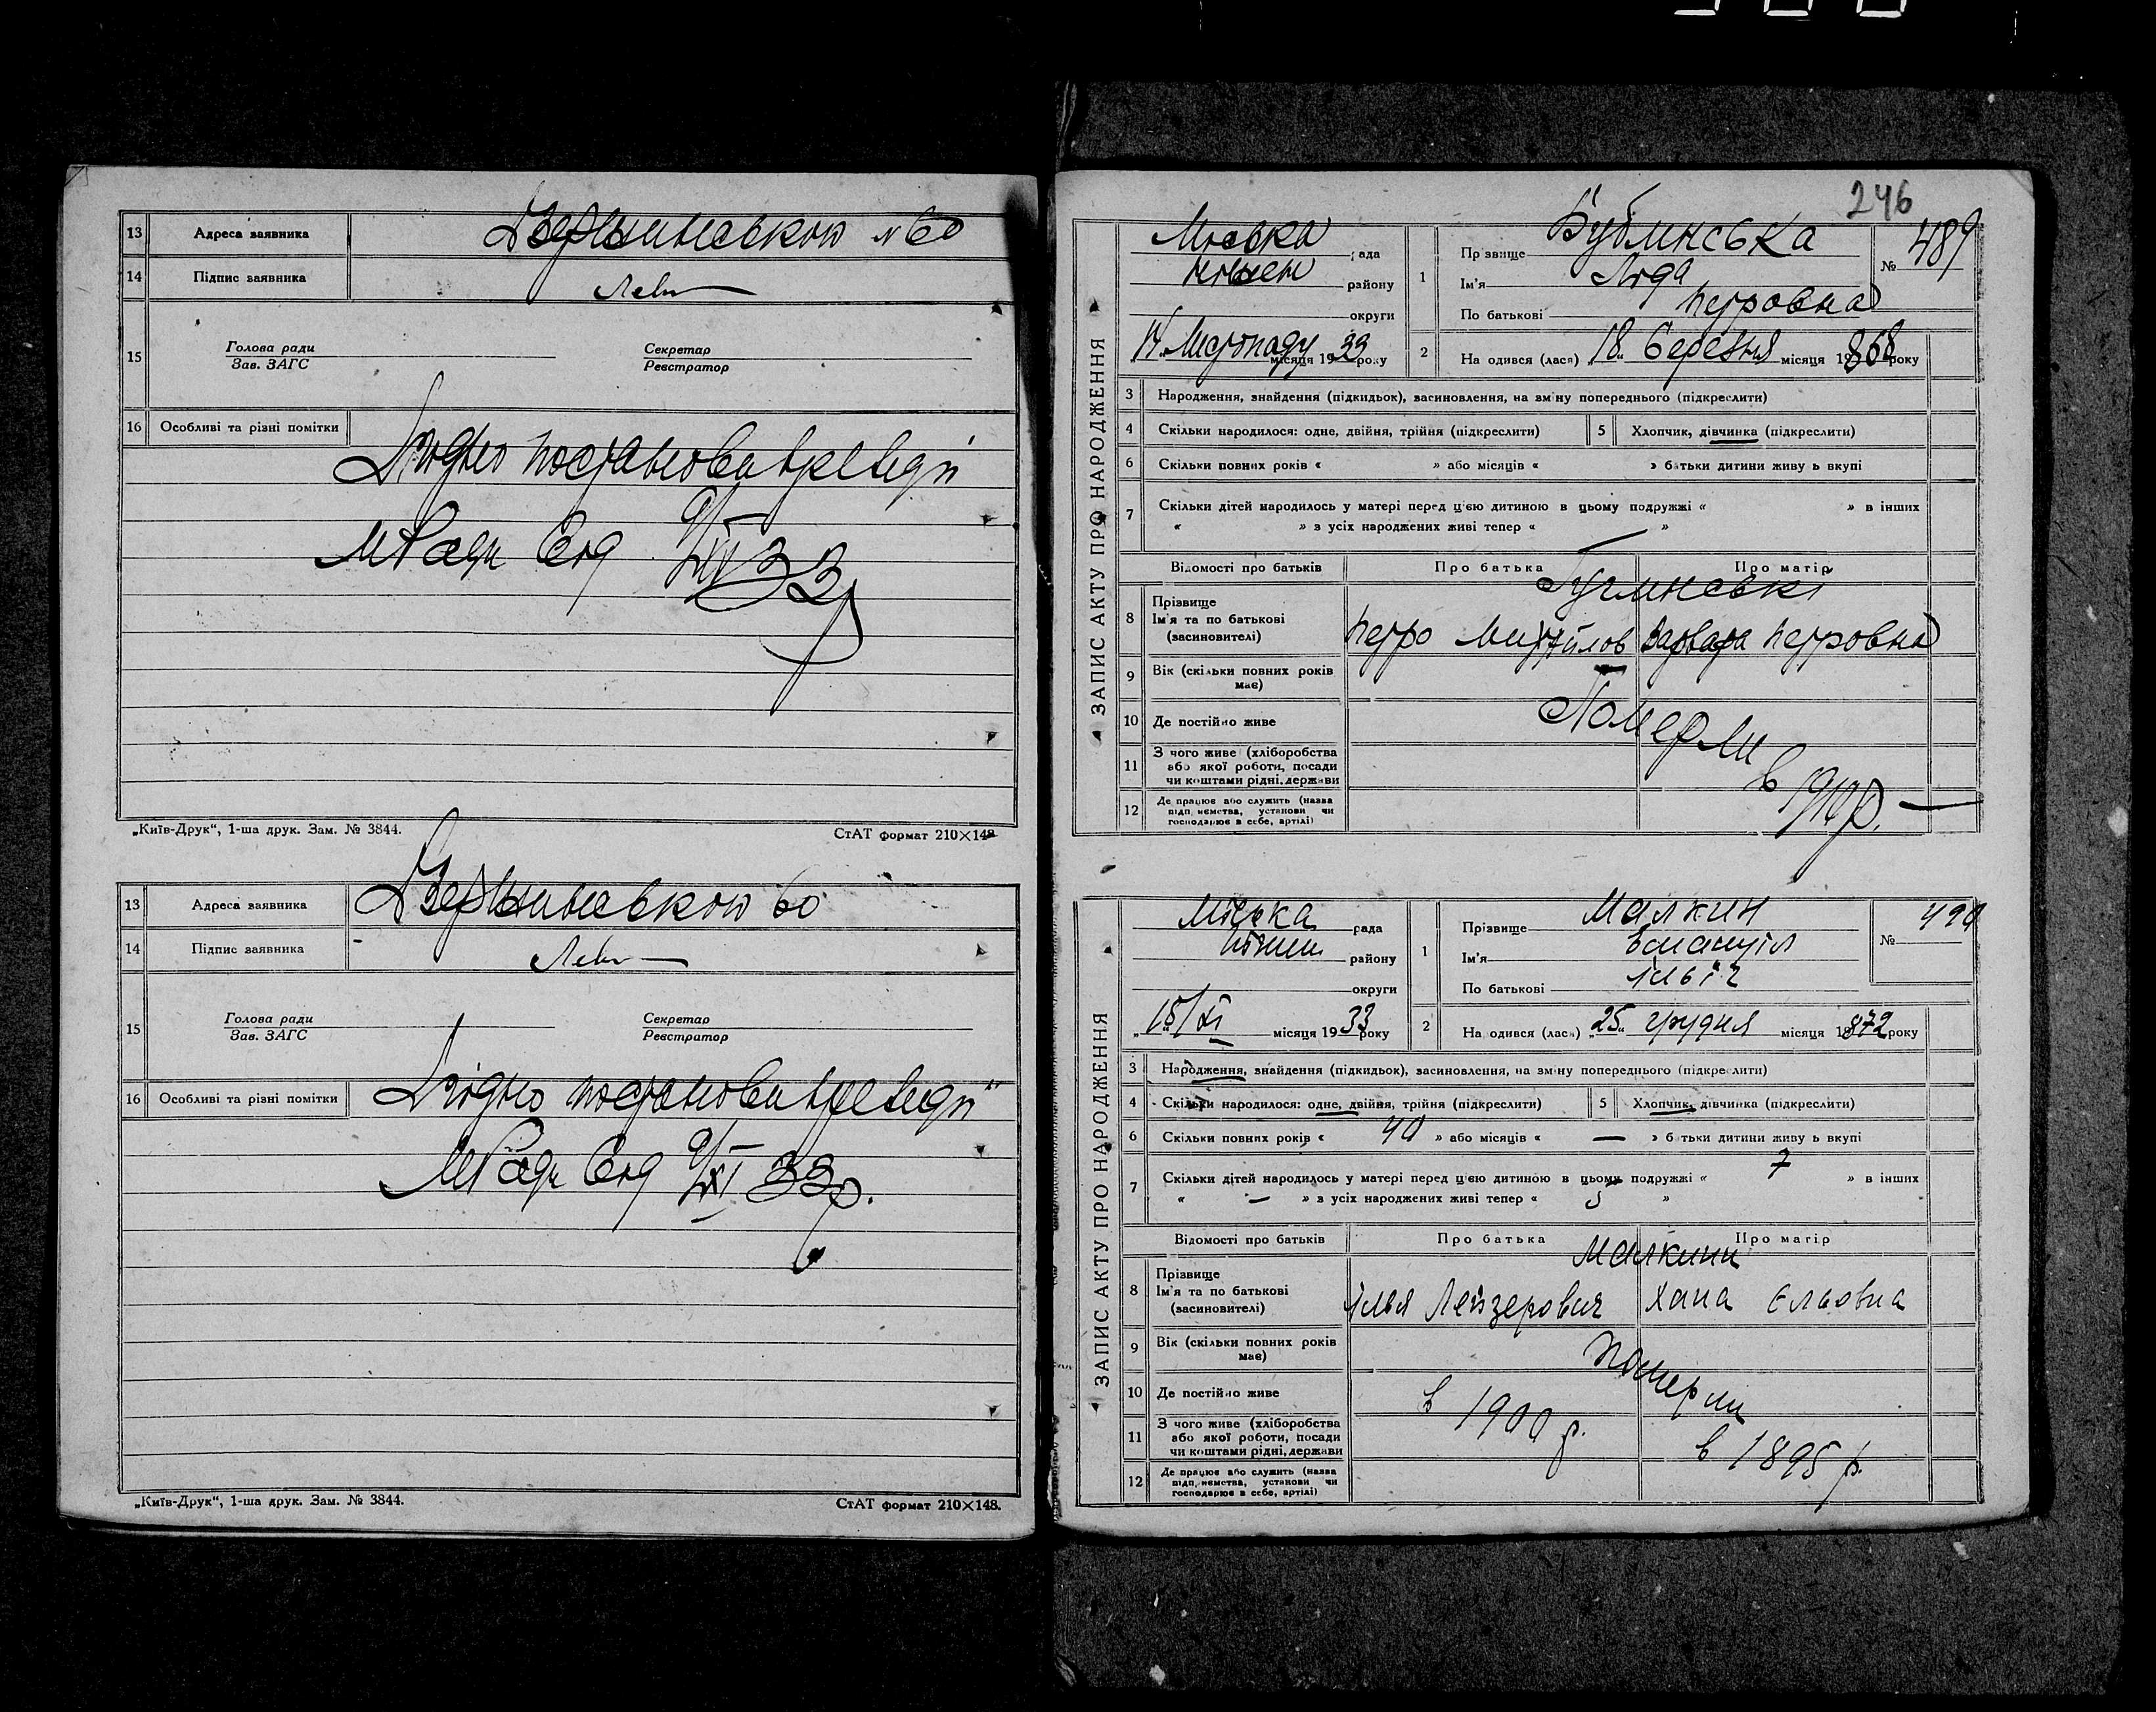 13 Адреса заявника Дзержинською №60
14 Підпис заявника Леви
15 Голова ради Секретар
Зав. ЗАГС Реєстратор
16 Особливі та різні помітки
Згідно постанови през
МРади від 9/XI 33
„Київ-Друк“, 1-ша друк. Зам. № 3844. СтАТ формат 210×148
13 Адреса заявника Дзержинською 60
14 Підпис заявника Леви
15 Голова ради Секретар
Зав. ЗАГС Реєстратор
16 Особливі та різні помітки Згідно постанови през
МРади від 9/XI 33р.
„Київ-Друк“, 1-ша друк. Зам. № 3844. СтАТ формат 210×148.
246
ЗАПИС АКТУ ПРО НАРОДЖЕННЯ
Міська рада
району
округи
Листопаду місяця 1933 року
1 Прізвище
Ім'я Ліда
По батькові Петровна
№ 489
2 На одився (лася) „18“ Березня місяця 1868 року
3 Народження, знайдення (підкидьок), засиновлення, на зміну попереднього (підкреслити)
4 Скільки народилося: одне, двійня, трійня (підкреслити) 5 Хлопчик, дівчинка (підкреслити)
6 Скільки повних років « » або місяців « » батьки дитини живу ь вкупі
7 Скільки дітей народилось у матері перед цією дитиною в цьому подружжі « » в інших
« » з усіх народжених живі тепер « »
Відомості про батьків Про батька Про матір
8 Прізвище
Ім'я та по батькові
(засиновителі)
Петро Михайлов Варвара Петровна
9 Вік (скільки повних років
має)
10 Де постійно живе Померли
11 З чого живе (хліборобства
або якої роботи, посади
чи коштами рідні, держави
в р.
12 Де працює або служить (назва
підп иємства, установи чи
господарює в себе, артілі)
ЗАПИС АКТУ ПРО НАРОДЖЕННЯ
Міська рада
району
округи
„15/XI місяця 1933 року
1 Прізвище Малкин
Ім'я Емануіл
По батькові Ільіч
№ 490
2 На одився (лася) „25“ грудня місяця 1872 року
3 Народження, знайдення (підкидьок), засиновлення, на зміну попереднього (підкреслити)
4 Скільки народилося: одне, двійня, трійня (підкреслити) 5 Хлопчик, дівчинка (підкреслити)
6 Скільки повних років « 40 » або місяців « — » батьки дитини живу ь вкупі
7 Скільки дітей народилось у матері перед цією дитиною в цьому подружжі « 7 » в інших
« — » з усіх народжених живі тепер « 5 »
Відомості про батьків Про батька Про матір
Малкини
8 Прізвище
Ім'я та по батькові
(засиновителі)
Ілья Лейзерович Хана Єльовна
9 Вік (скільки повних років
має)
Померли
10 Де постійно живе
11 З чого живе (хліборобства
або якої роботи, посади
чи коштами рідні, держави
в 1900 р. в 1895 р.
12 Де працює або служить (назва
підп иємства, установи чи
господарює в себе, артілі)